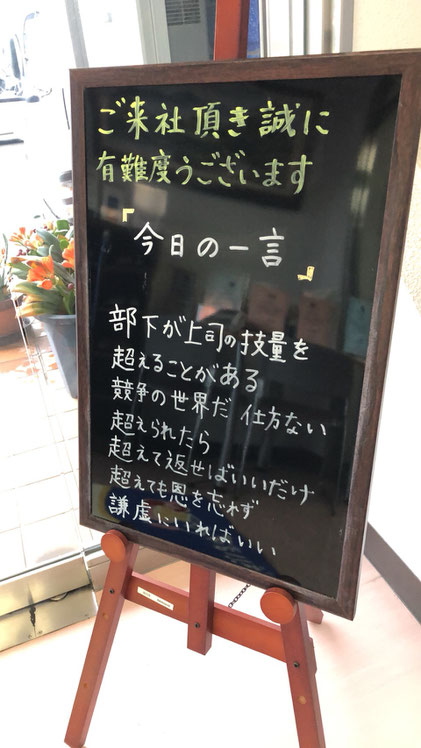 ご来社頂き誠に
有難度うございます
『今日の一言』
部下が上司の技量を
超えることがある
競争の世界だ 仕方ない
超えられたら
超えて返せばいいだけ
超えても恩を忘れず
謙虚にいればいい